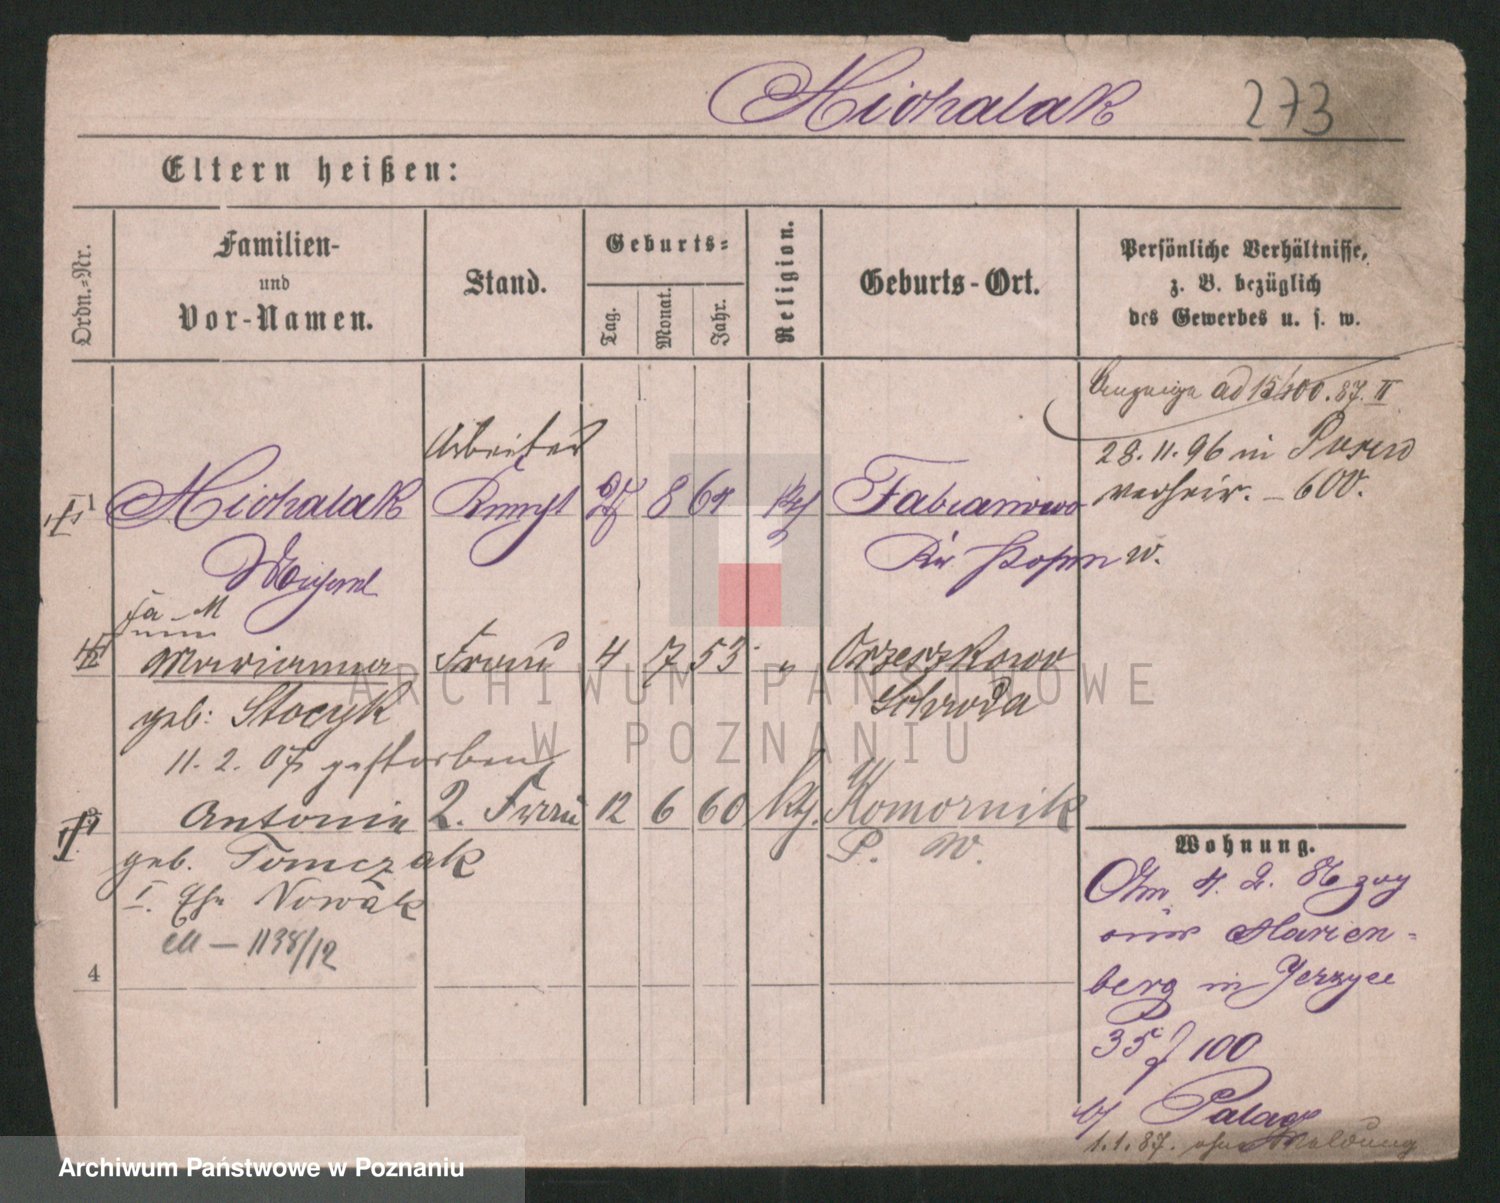 Michalak 273
Eltern heißen:
Ordn.=Nr.
Familien-
und
Vor-Namen.
Stand.
Geburts=
Tag.
Monat.
Jahr.
Religion.
Geburts-Ort.
Persönliche Verhältnisse,
z. B. bezüglich
des Gewerbes u. s. w.
Anzeige ad 15400.87. II
Arbeiter
28.11.96 in Posen
verheir. – 600.
1 Michalak Knecht 8 64 Kth Fabianowo
Kr Posen W.
Marianna Frau 4 7 53 " Orzeszkowo
geb: Stocyk Schroda
11. 2. 07 gestorben
Antonie 2. Frau 12 6 60 kth. Komornik
geb. Tomczak P. W.
I. Ehe Nowak
1138/12
4
Wohnung.
4. 2. 86 zog
Marien-
berg in Jerzyce
35 f 100
by Palacz
1.1.87. ohne Meldung
ARCHIWUM PAŃSTWOWE
W POZNANIU
Archiwum Państwowe w Poznaniu